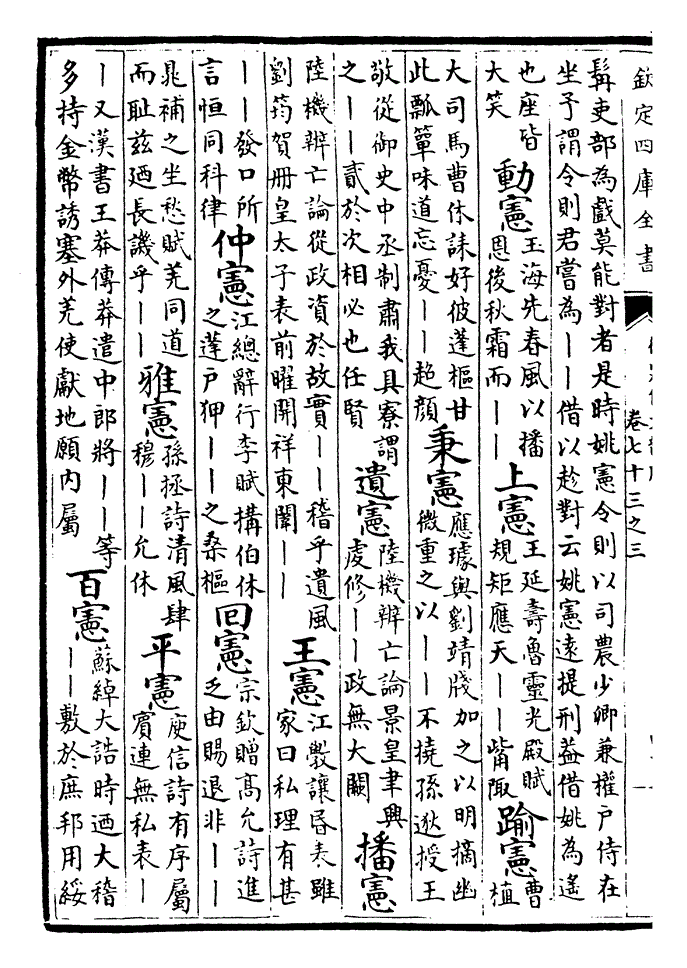 欽定四庫全書
卷七十三之三
髯吏部為戲莫能對者是時姚憲令則以司農少卿兼權戶侍在
坐予謂令則君當為——借以趁對云姚憲遠提刑益借姚為遙
也座皆
大笑
動憲
玉海先春風以播
恩後秋霜而——
上憲
王延壽魯靈光殿賦
規矩應天——觜陬
踰憲
曹
植
大司馬曹休誄好彼蓬樞甘
此瓢簞味道忘憂——超顔
秉憲
應璩與劉靖牋加之以明摘幽
微重之以——不撓孫逖授王
敬從御史中丞制肅我具寮謂
之——貳於次相必也任賢
遺憲
陸機辨亡論景皇聿興
虔修——政無大闕
播憲
陸機辨亡論從政資於故實——稽乎遺風
劉筠賀冊皇太子表前曜開祥東闈——
王憲
江斆讓昏表雖
家曰私理有甚
——發口所
言恒同科律
仲憲
江總辭行李賦搆伯休
之蓬戶狎——之桑樞
回憲
宗欽贈高允詩進
乏由賜退非——
晁補之坐愁賦羌同道
而耻兹廼長譏乎——
雅憲
孫拯詩清風肆
穆——允休
平憲
庾信詩有序屬
賓連無私表—
—又漢書王莽傳莽遣中郎將——等
多持金幣誘塞外羌使獻地願内屬
百憲
蘇綽大誥時迺大稽
——敷於庶邦用綏